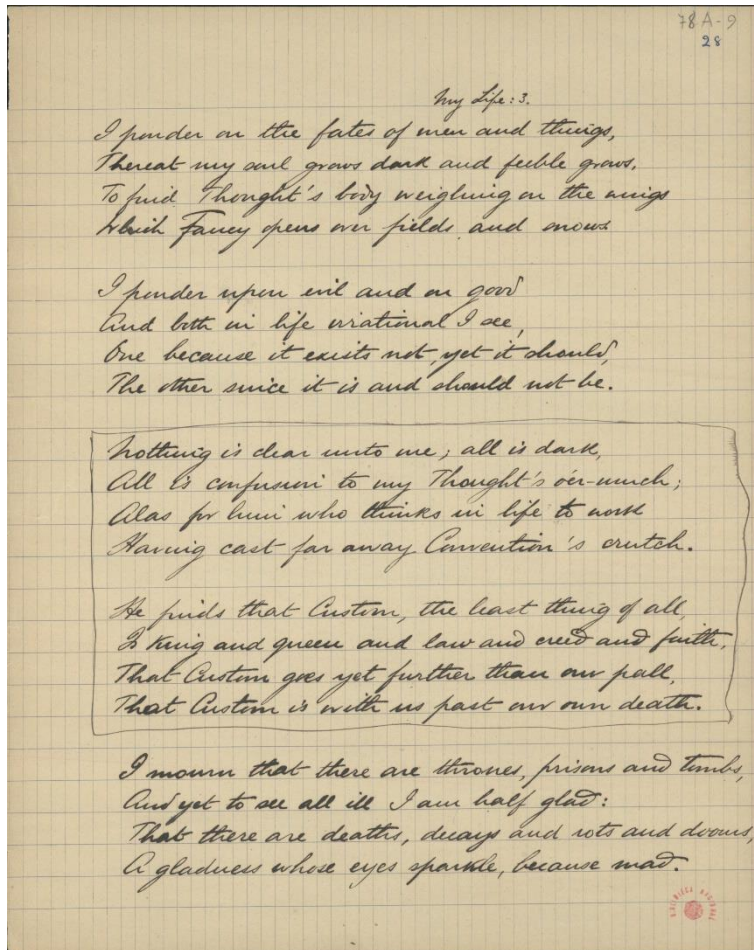 78A-9
28
My Life: 3.
I ponder on the fates of men and things,
Thereat my soul grows dark and feeble grows,
To find Thought's body weighing on the wings
Which Fancy opens over fields and snows.
I ponder upon evil and on good
And both in life irrational I see,
One because it exists not, yet it should,
The other since it is and should not be.
Nothing is clear unto me; all is dark,
All is confusion to my Thought's o'er-much;
Alas for him who thinks in life to work
Having cast far away Convention's crutch.
He finds that Custom, the least thing of all,
Is King and queen and law and creed and faith,
That Custom goes yet further than our pall,
That Custom is with us past our own death.
I mourn that there are thrones, prisons and tombs,
And yet to see all ill I am half glad:
That there are deaths, decays and rots and dooms,
A gladness whose eyes sparkle, because mad.
BIBLIOTECA NACIONAL